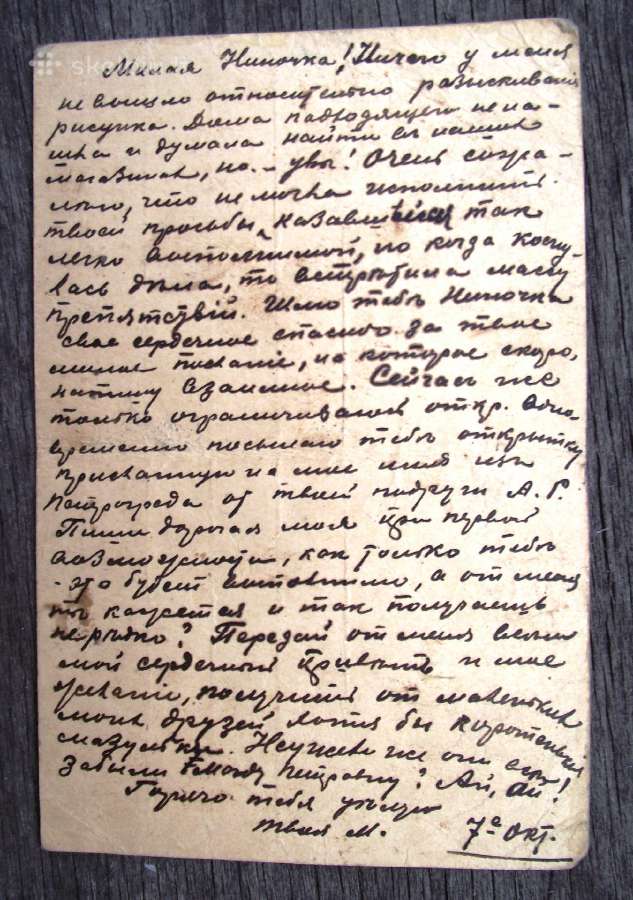 Милая Ниночка! Ничего у меня
не вышло относительно разыскивания
рисунка. Дома подходящего не на-
шла и думала найти въ нашихъ
магазинахъ, но - увы! Очень сожа-
лѣю, что не могла исполнить
твоей просьбы, казавшейся так
легко выполнимой, но когда косну-
лась дѣла, то встрѣтила массу
препятствій. Шлю тебѣ Ниночка
свое сердечное спасибо за твое
милое посланіе, на которое скоро,
напишу взаимное. Сейчасъ же
только ограничиваюсь откр. Одно-
временно посылаю тебѣ открытку
присланную на мое имя изъ
Петрограда от твоей подруги А. Г.
Пиши дорогая моя при первой
возможности, как только тебѣ
это будет , а от меня
ты кажется и так получаешь
нерѣдко? Передай от меня всѣм
мой сердечный привѣтъ и мое
желаніе, получить от маленьких
моих друзей хотя бы коротенькія
. Неужели же они
забыли Петровну? Ай, ай!
Горячо тебя цѣлую
твоя М. 7е Окт.